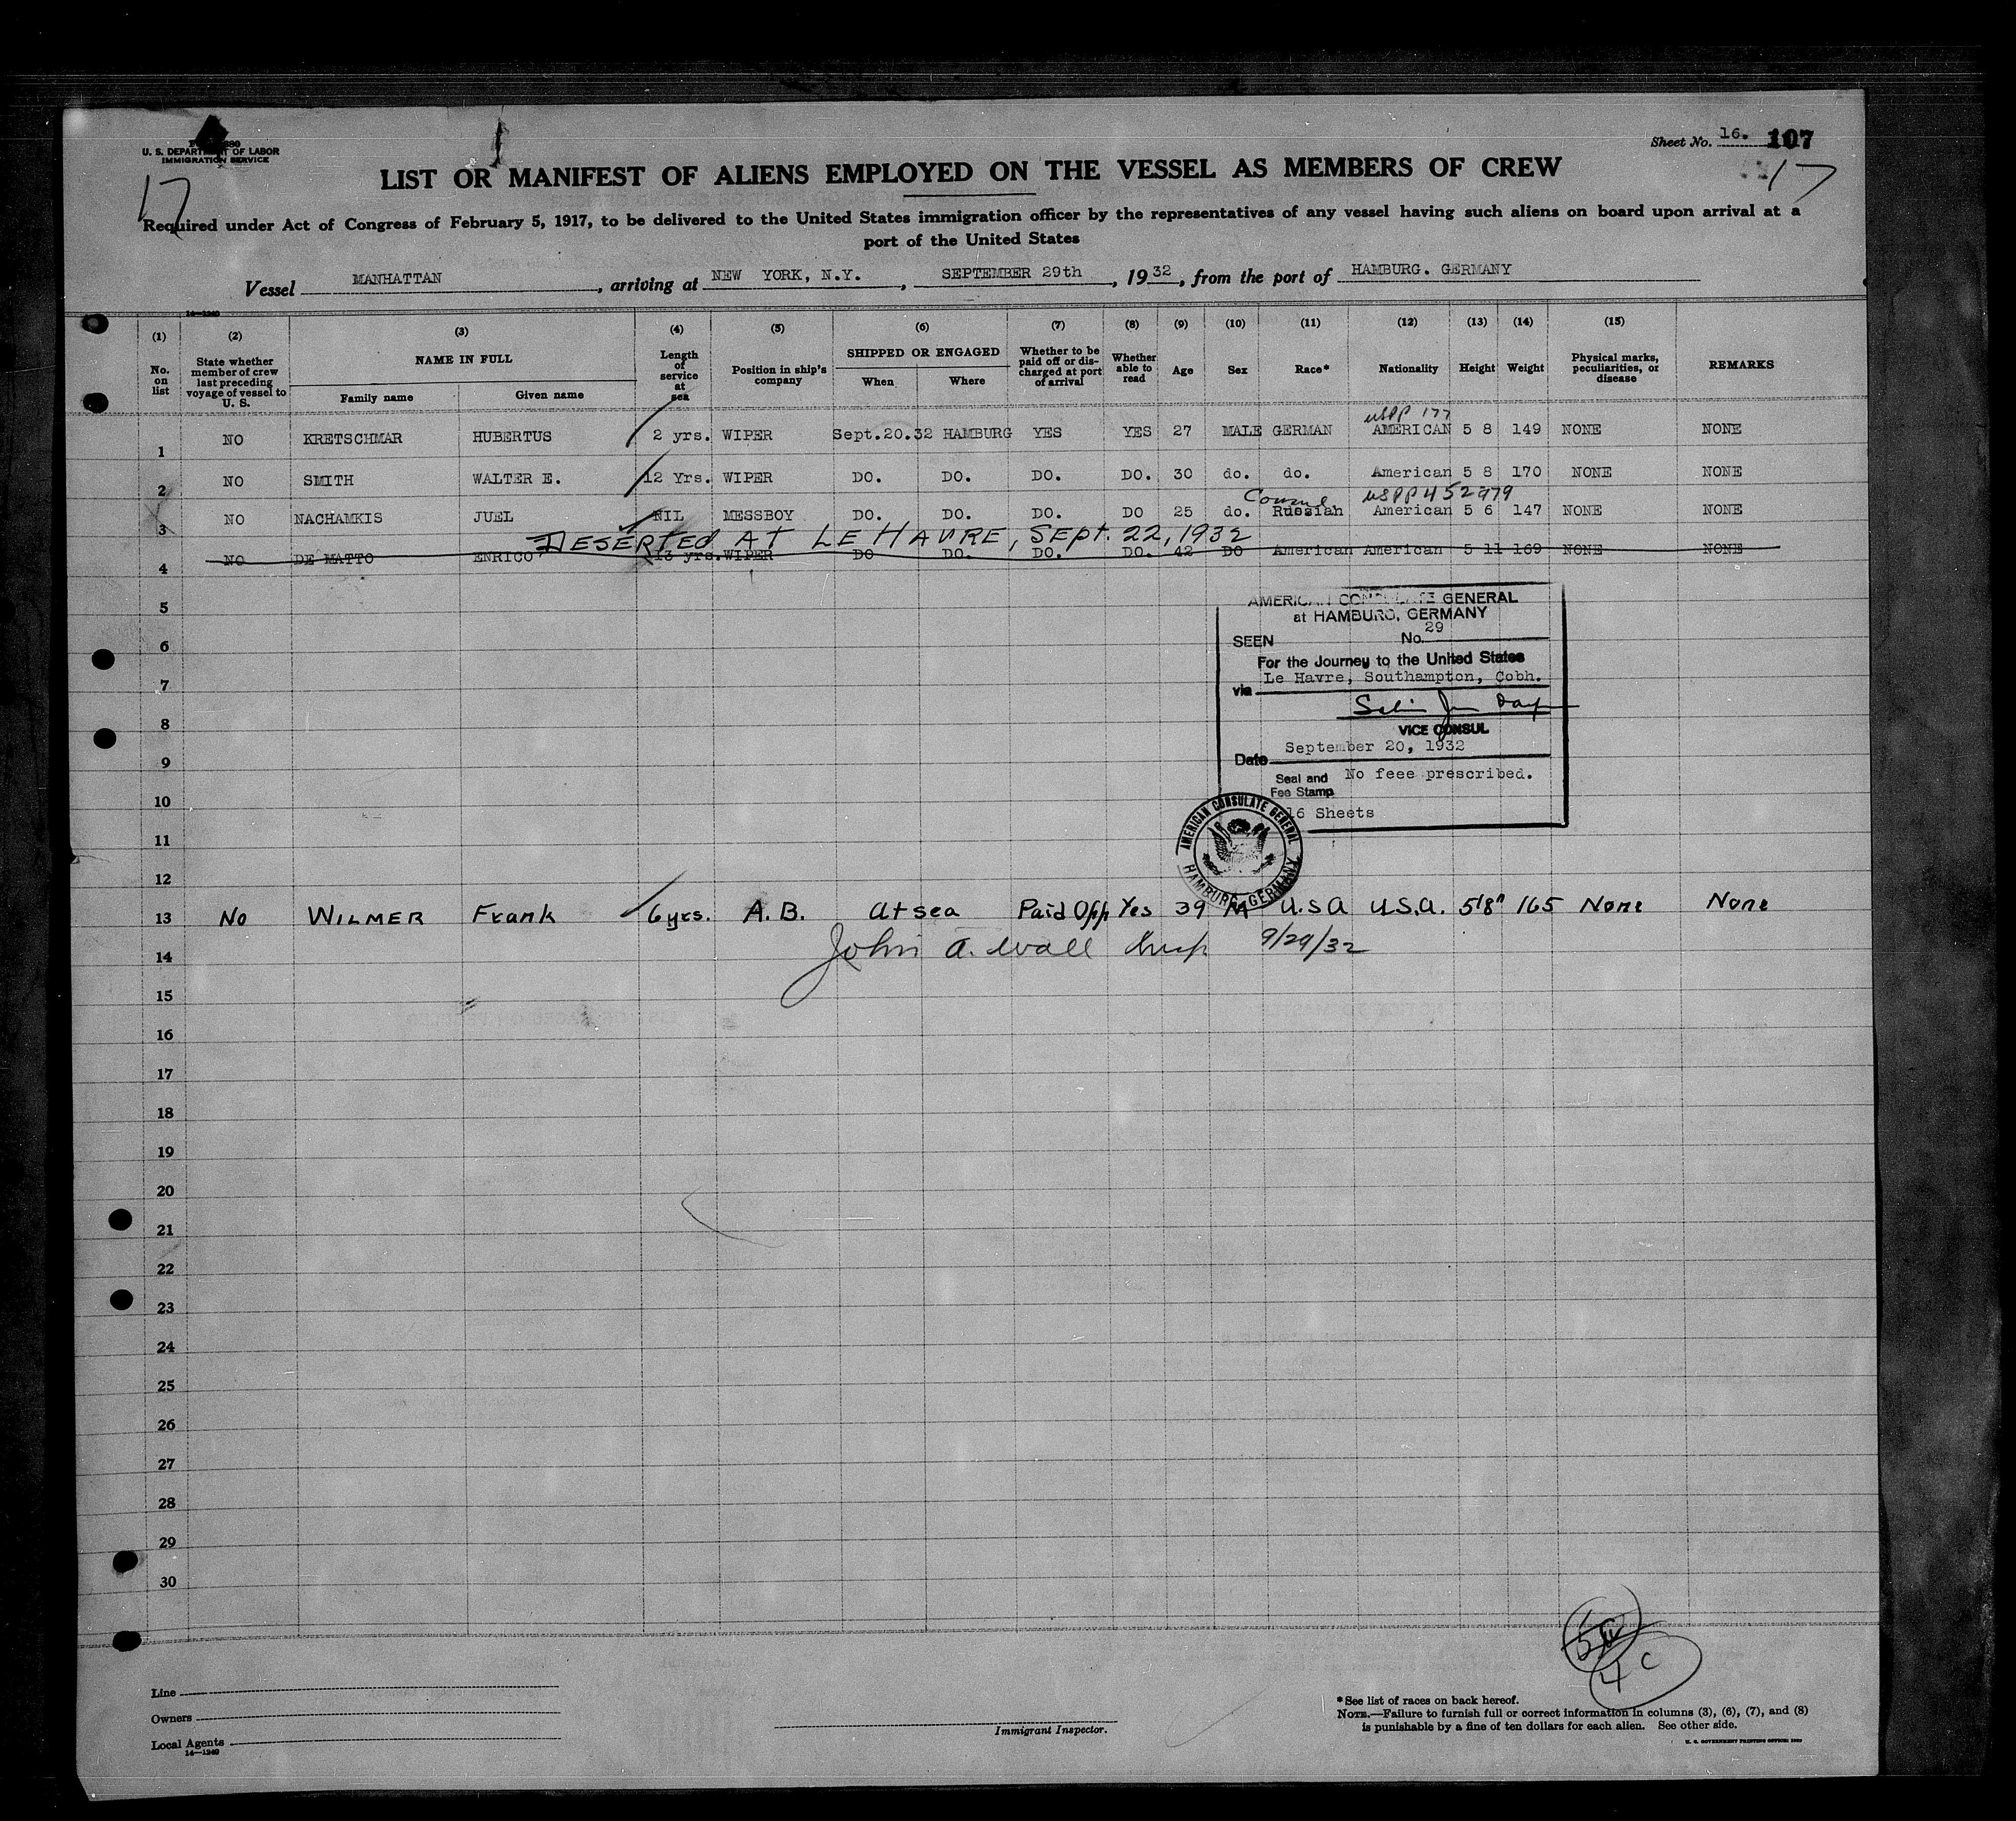 Sheet No. 16. 107
U. S. DEPARTMENT OF LABOR
IMMIGRATION SERVICE
17
17
LIST OR MANIFEST OF ALIENS EMPLOYED ON THE VESSEL AS MEMBERS OF CREW
Required under Act of Congress of February 5, 1917, to be delivered to the United States immigration officer by the representatives of any vessel having such aliens on board upon arrival at a
port of the United States
Vessel MANHATTAN, arriving at NEW YORK, N.Y., SEPTEMBER 29th, 1932, from the port of HAMBURG. GERMANY
14—1240
(1) (2) (3) (4) (5) (6) (7) (8) (9) (10) (11) (12) (13) (14) (15)
No. on list
State whether member of crew last preceding voyage of vessel to U. S.
NAME IN FULL
Family name Given name
Length of service at sea
Position in ship's company
SHIPPED OR ENGAGED
When Where
Whether to be paid off or discharged at port of arrival
Whether able to read
Age Sex Race* Nationality Height Weight
Physical marks, peculiarities, or disease
REMARKS
USPP 177
1 NO KRETSCHMAR HUBERTUS 2 yrs. WIPER Sept.20.32 HAMBURG YES YES 27 MALE GERMAN AMERICAN 5 8 149 NONE NONE
2 NO SMITH WALTER E. 12 Yrs. WIPER DO. DO. DO. DO. 30 do. do. American 5 8 170 NONE NONE
USPP 452979
3 NO NACHAMKIS JUEL NIL MESSBOY DO. DO. DO. DO 25 do. Russian American 5 6 147 NONE NONE
DESERTED AT LE HAVRE, SEPT. 22, 1932
4 NO DE MATTO ENRICO 13 yrs. WIPER DO DO. DO. DO. 42 DO American American 5 11 169 NONE NONE
5
6
7
8
9
10
11
12
AMERICAN CONSULATE GENERAL
at HAMBURG, GERMANY
SEEN No. 29
For the Journey to the United States
via Le Havre, Southampton, Cobh.
VICE CONSUL
Date September 20, 1932
Seal and Fee Stamp No feee prescribed.
16 Sheets
AMERICAN CONSULATE GENERAL
HAMBURG, GERMANY
13 No WILMER Frank 6 yrs. A.B. At sea Paid Off Yes 39 M U.S.A U.S.A. 5'8" 165 None None
14 John A. Wall 9/29/32
15
16
17
18
19
20
21
22
23
24
25
26
27
28
29
30
4 C
Line
Owners
Local Agents
14—1240
Immigrant Inspector.
*See list of races on back hereof.
NOTE.—Failure to furnish full or correct information in columns (3), (6), (7), and (8)
is punishable by a fine of ten dollars for each alien. See other side.